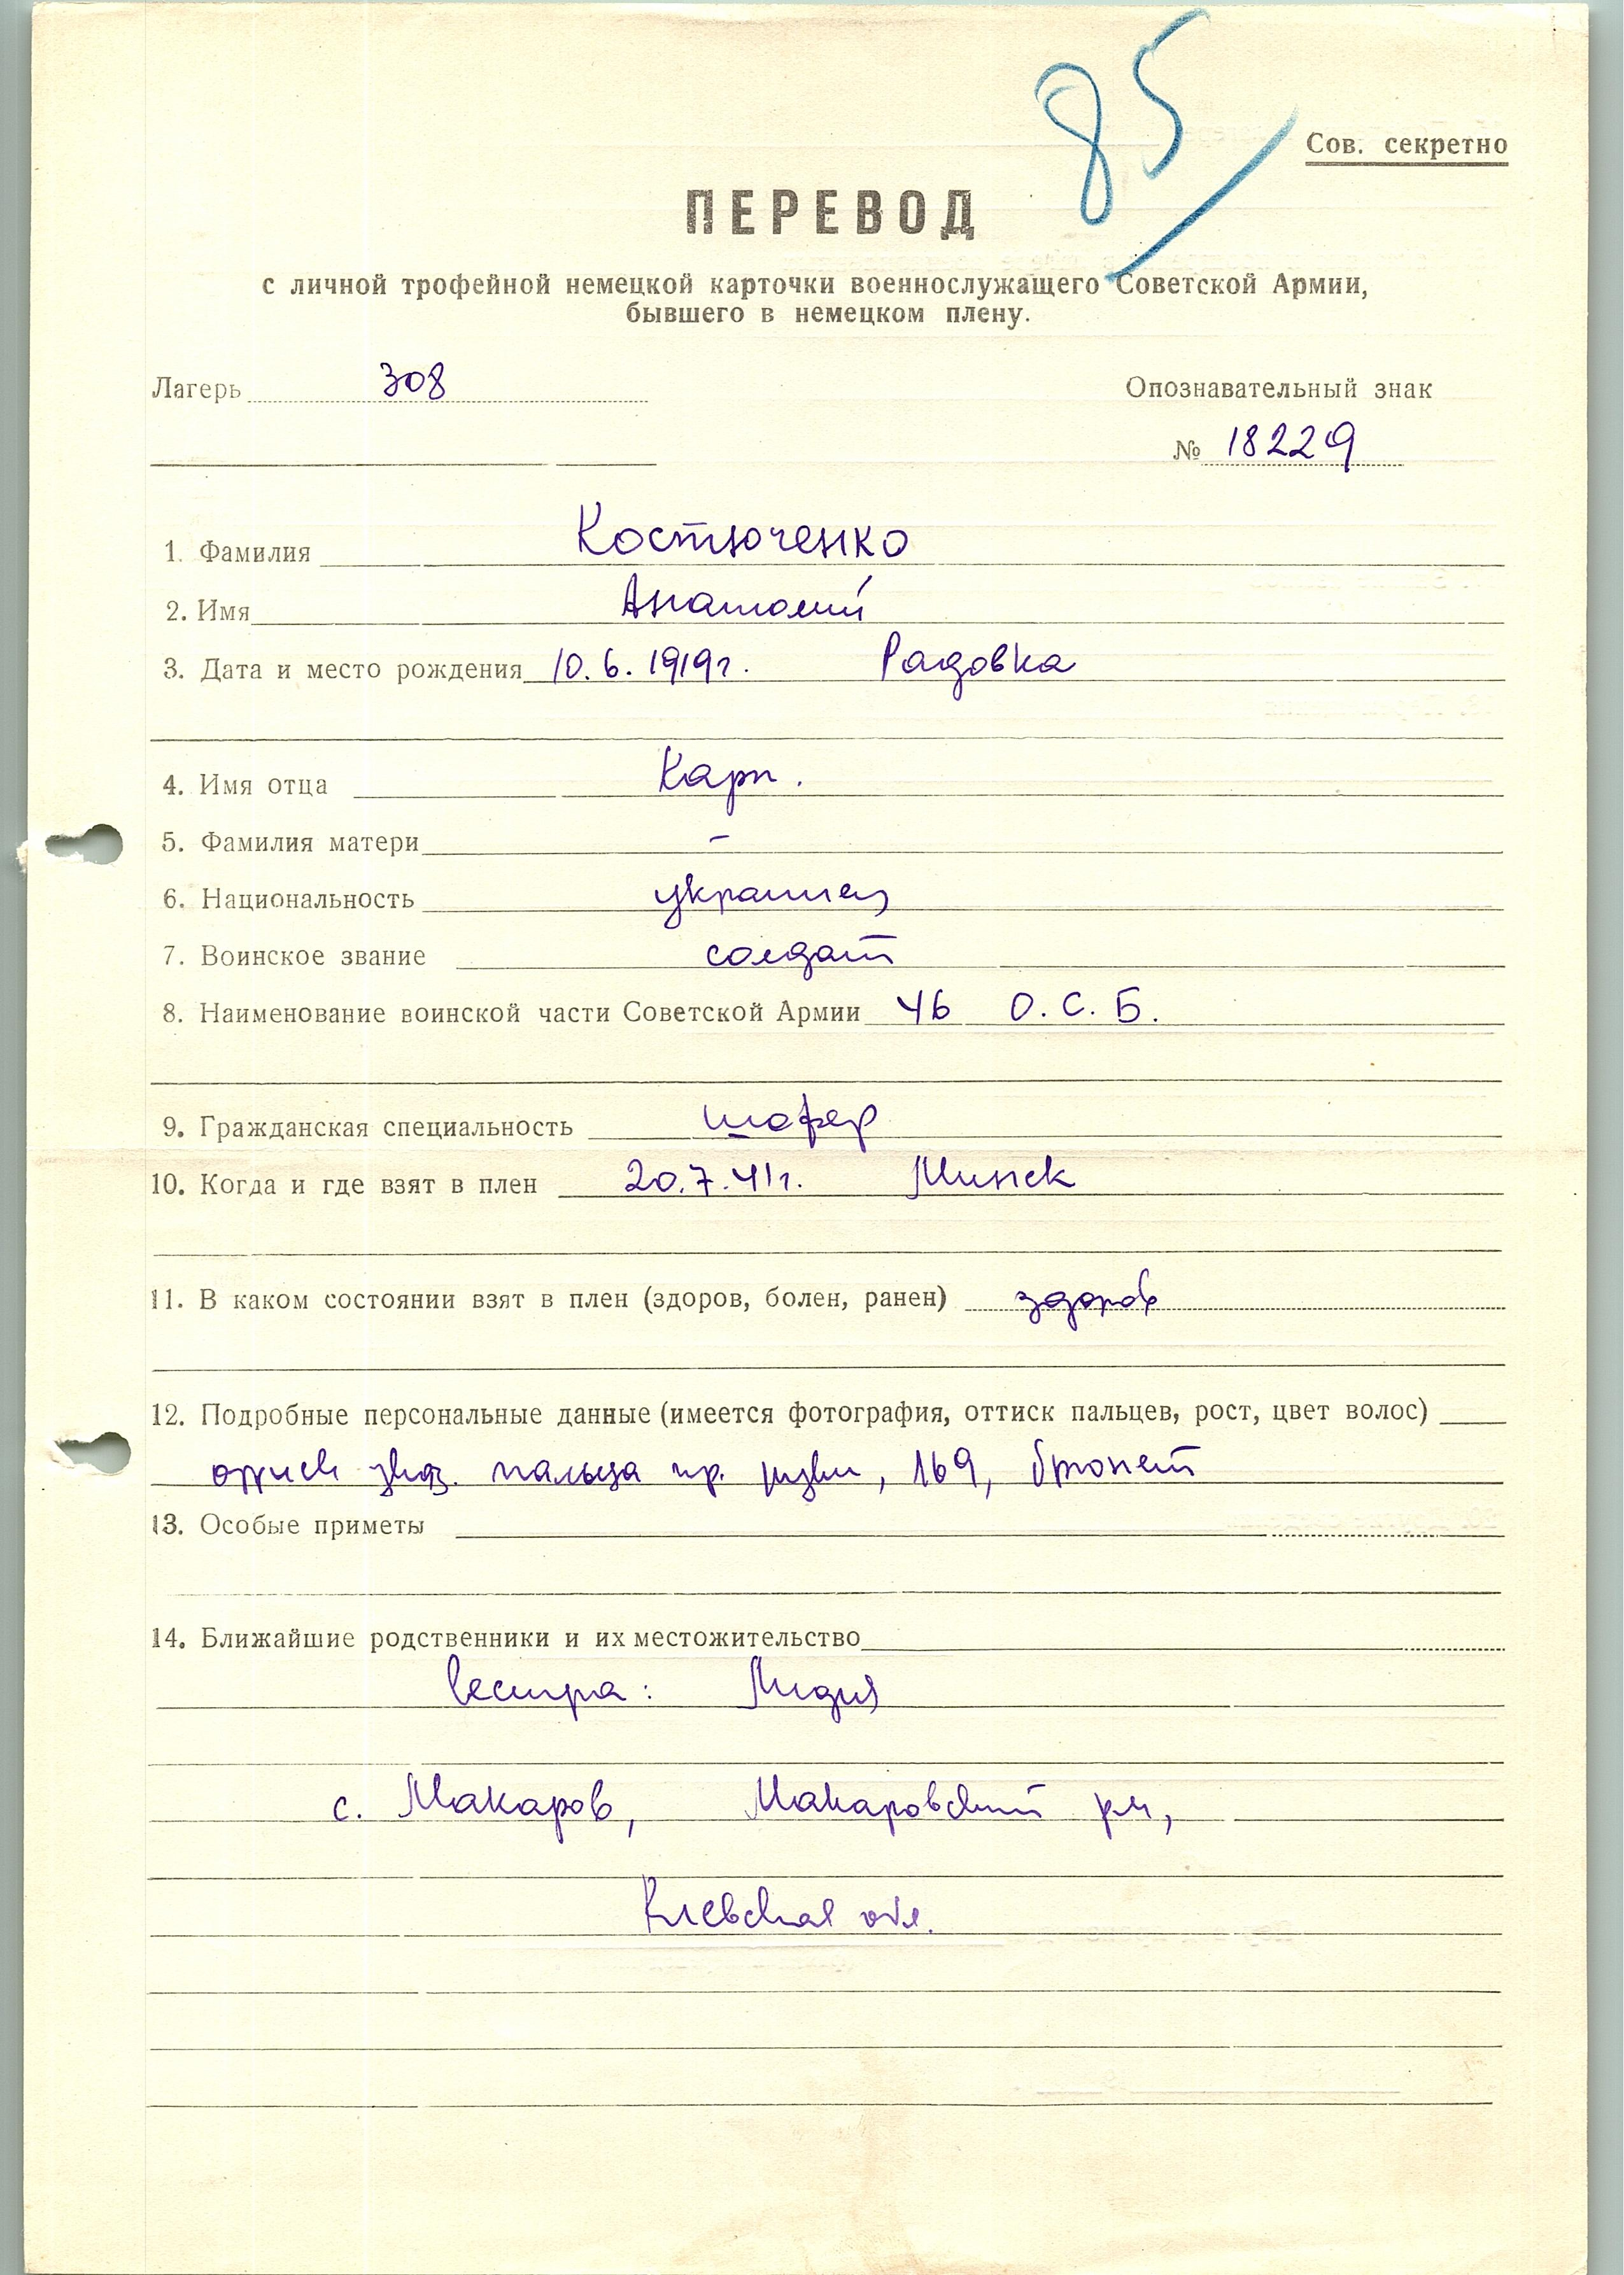 85
Сов. секретно
ПЕРЕВОД
с личной трофейной немецкой карточки военнослужащего Советской Армии,
бывшего в немецком плену.
Лагерь 308 Опознавательный знак
№ 18229
1. Фамилия Костюченко
2. Имя Анатолий
3. Дата и место рождения 10.6.1919г. Радовка
4. Имя отца Карп.
5. Фамилия матери –
6. Национальность украинец
7. Воинское звание солдат
8. Наименование воинской части Советской Армии 46 О.С.Б.
9. Гражданская специальность шофер
10. Когда и где взят в плен 20.7.41г. Минск
11. В каком состоянии взят в плен (здоров, болен, ранен) здоров
12. Подробные персональные данные (имеется фотография, оттиск пальцев, рост, цвет волос)
оттиск указ. пальца пр. руки, 169, брюнет
13. Особые приметы
14. Ближайшие родственники и их местожительство
Сестра: Лидия
с. Макаров, Макаровский р-н,
Киевская обл.